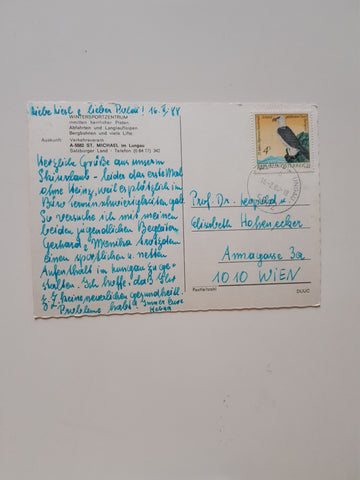 Liebe Liesl & lieber Poldi! 16.II.88
WINTERSPORTZENTRUM
inmitten herrlicher Pisten
Abfahrten und Langlaufloipen
Bergbahnen und viele Lifte.
Auskunft: Verkehrsverein
A-5582 ST. MICHAEL im Lungau
Salzburger Land Telefon (0 64 77) 342
Herzliche Grüße aus unserem
Skiurlaub - leider das erste Mal
ohne Heinz, weil er plötzlich im
Büro Terminschwierigkeiten hat.
So versuche ich mit meinen
beiden jugendlichen Begleitern
Gerhard & Monika trotzdem
einen sportlichen u. netten
Aufenthalt im Lungau zu ge-
stalten. Ich hoffe, daß Ihr
z. Z. keine neuerlichen gesundheitl.
Probleme habt! Immer Eure
4 S
REPUBLIK ÖSTERREICH
Prof. Dr. Leopold u.
Elisabeth Hohenecker
Annagasse 3a
1010 WIEN
Postleitzahl
DUUC